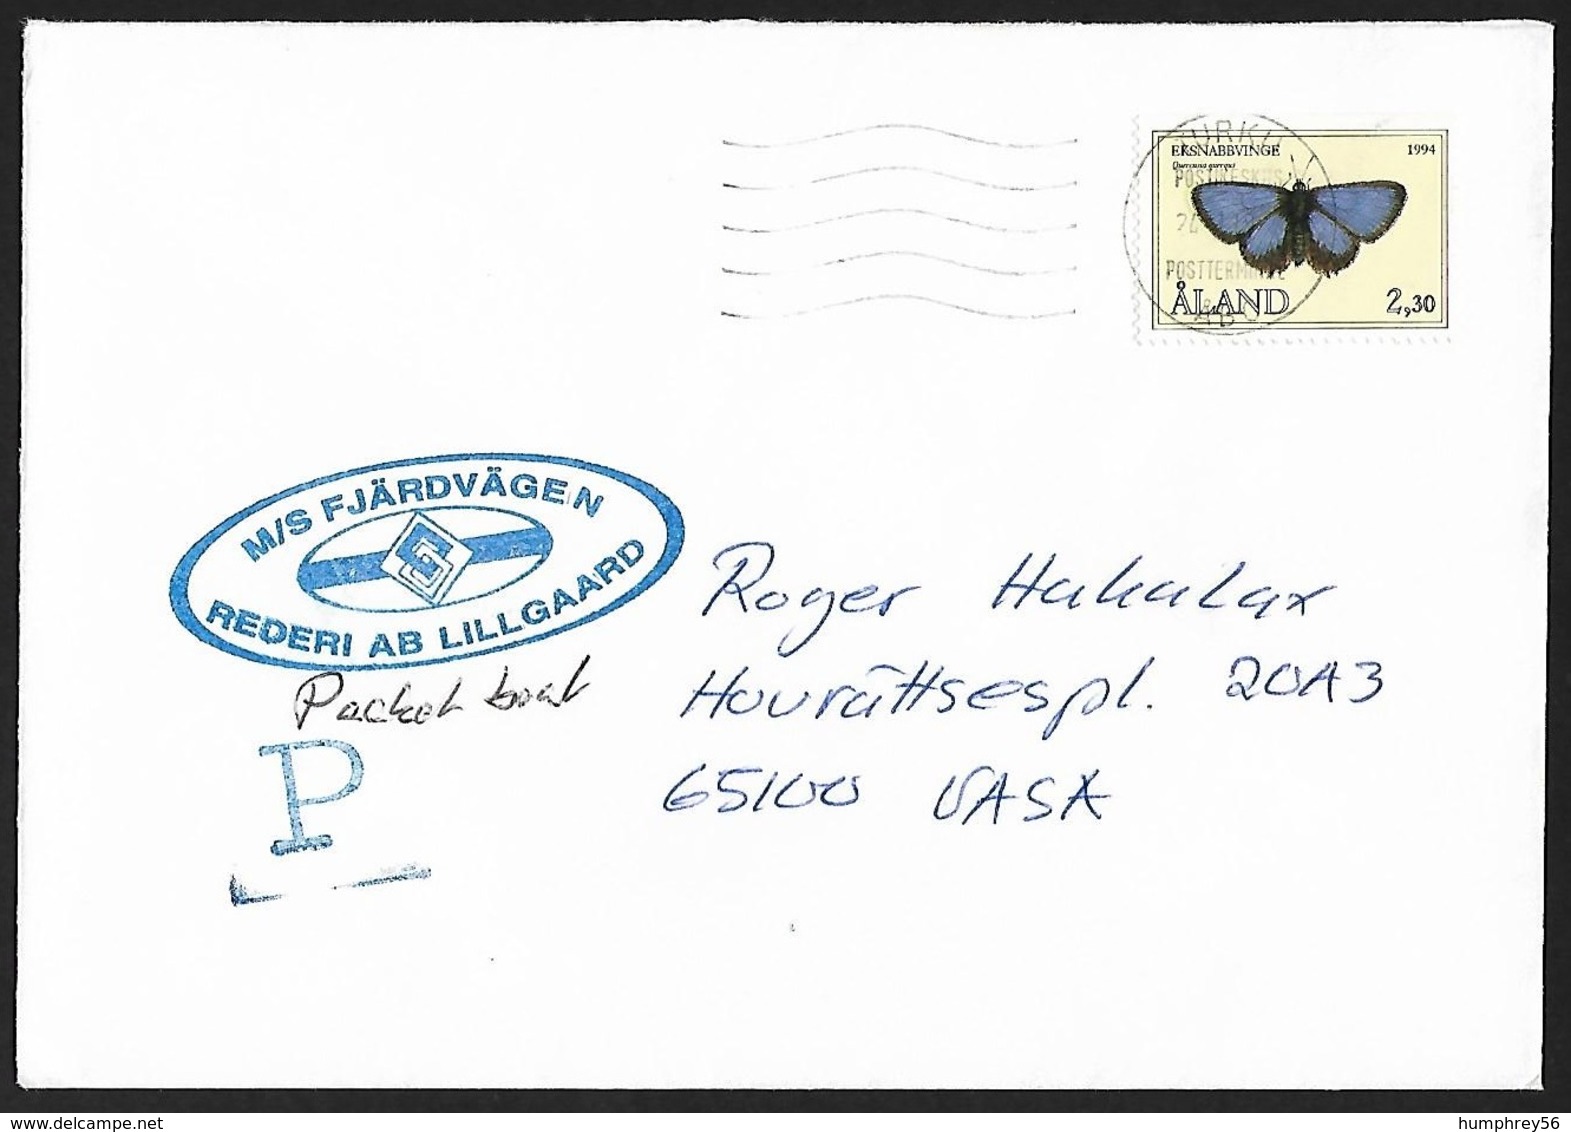 TURKU
EKSNABBVINGE 1994
Quercusia quercus
POSTIKESKUS
POSTTERMINAL
ÅLAND 2,30
ÅBO
M/S FJÄRDVÄGEN
REDERI AB LILLGAARD
Packet boat
P
Roger Hakalax
Hovrättsespl. 20A3
65100 VASA
delcampe.net
humphrey56